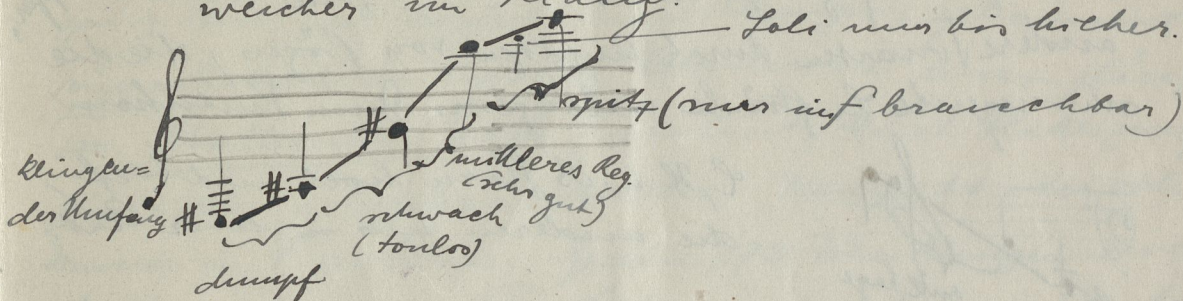 weicher im Klang.
Soli nur bis hieher.
spitz (nur in f brauchbar)
klingen=
der Umfang
mittleres Reg.
(sehr gut)
schwach
(tonlos)
dumpf